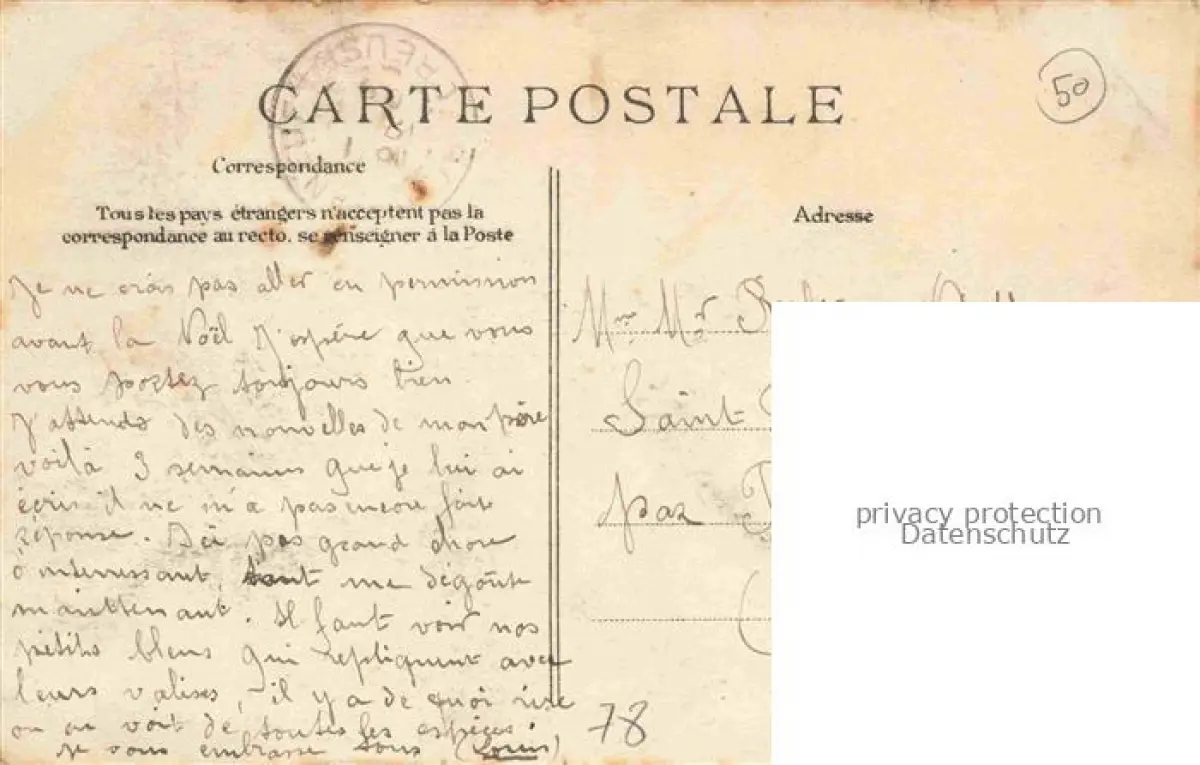 CARTE POSTALE
50
Correspondance
Tous les pays étrangers n'acceptent pas la
correspondance au recto. se renseigner á la Poste
Adresse
Je ne crois pas aller en permission
avant la Noël J'espére que vous
vous portez toujours bien
J'attends des nouvelles de mon pére
voilà 3 semaines que je lui ai
écris il ne m'a pas encore fait
réponse. Ici pas grand chose
d'interressant, tout me dégoûte
maintenant. Il faut voir nos
petits bleus qui repliquent avec
leurs valises, il y a de quoi rire
on en voit de toutes les espèces.
je vous embrasse tous (Louis)
Mme Mr
Saint
par
78
privacy protection
Datenschutz